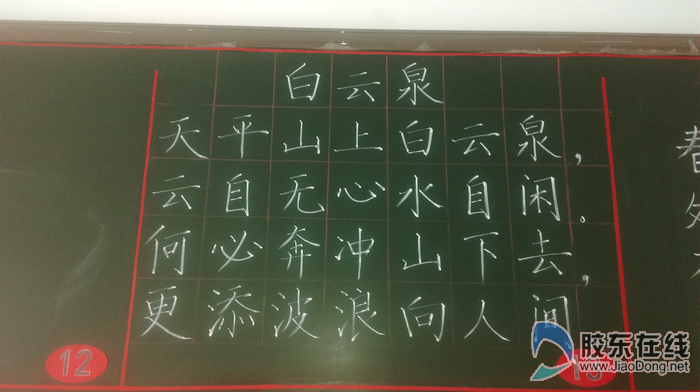 白云泉
天平山上白云泉，
云自无心水自闲。
何必奔冲山下去，
更添波浪向人间
12
胶东在线
www.JiaoDong.net